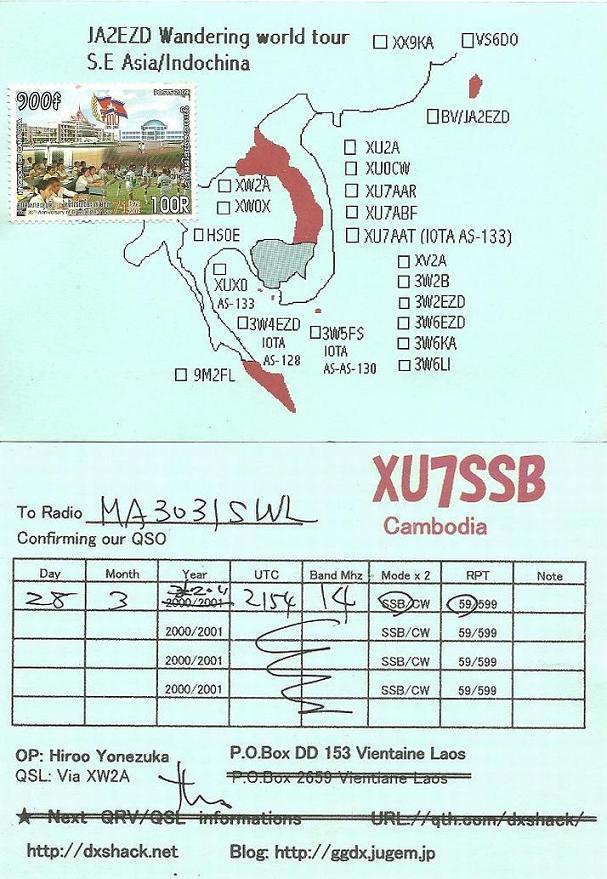 JA2EZD Wandering world tour
S.E Asia/Indochina
XX9KA
VS6DO
BV/JA2EZD
900៛
100R
XU2A
XU0CW
XU7AAR
XU7ABF
XU7AAT (IOTA AS-133)
XW2A
XW0X
HS0E
XUX0
AS-133
XV2A
3W2B
3W2EZD
3W6EZD
3W6KA
3W6LI
3W4EZD
IOTA
AS-128
3W5FS
IOTA
AS-AS-130
9M2FL
XU7SSB
Cambodia
To Radio MA3031SWL
Confirming our QSO
Day Month Year UTC Band Mhz Mode x 2 RPT Note
28 3 2000/2001 2154 14 SSB/CW 59/599
2000/2001 SSB/CW 59/599
2000/2001 SSB/CW 59/599
2000/2001 SSB/CW 59/599
OP: Hiroo Yonezuka P.O.Box DD 153 Vientaine Laos
QSL: Via XW2A P.O.Box 2659 Vientiane Laos
★ Next QRV/QSL informations URL://qth.com/dxshack/
http://dxshack.net Blog: http://ggdx.jugem.jp